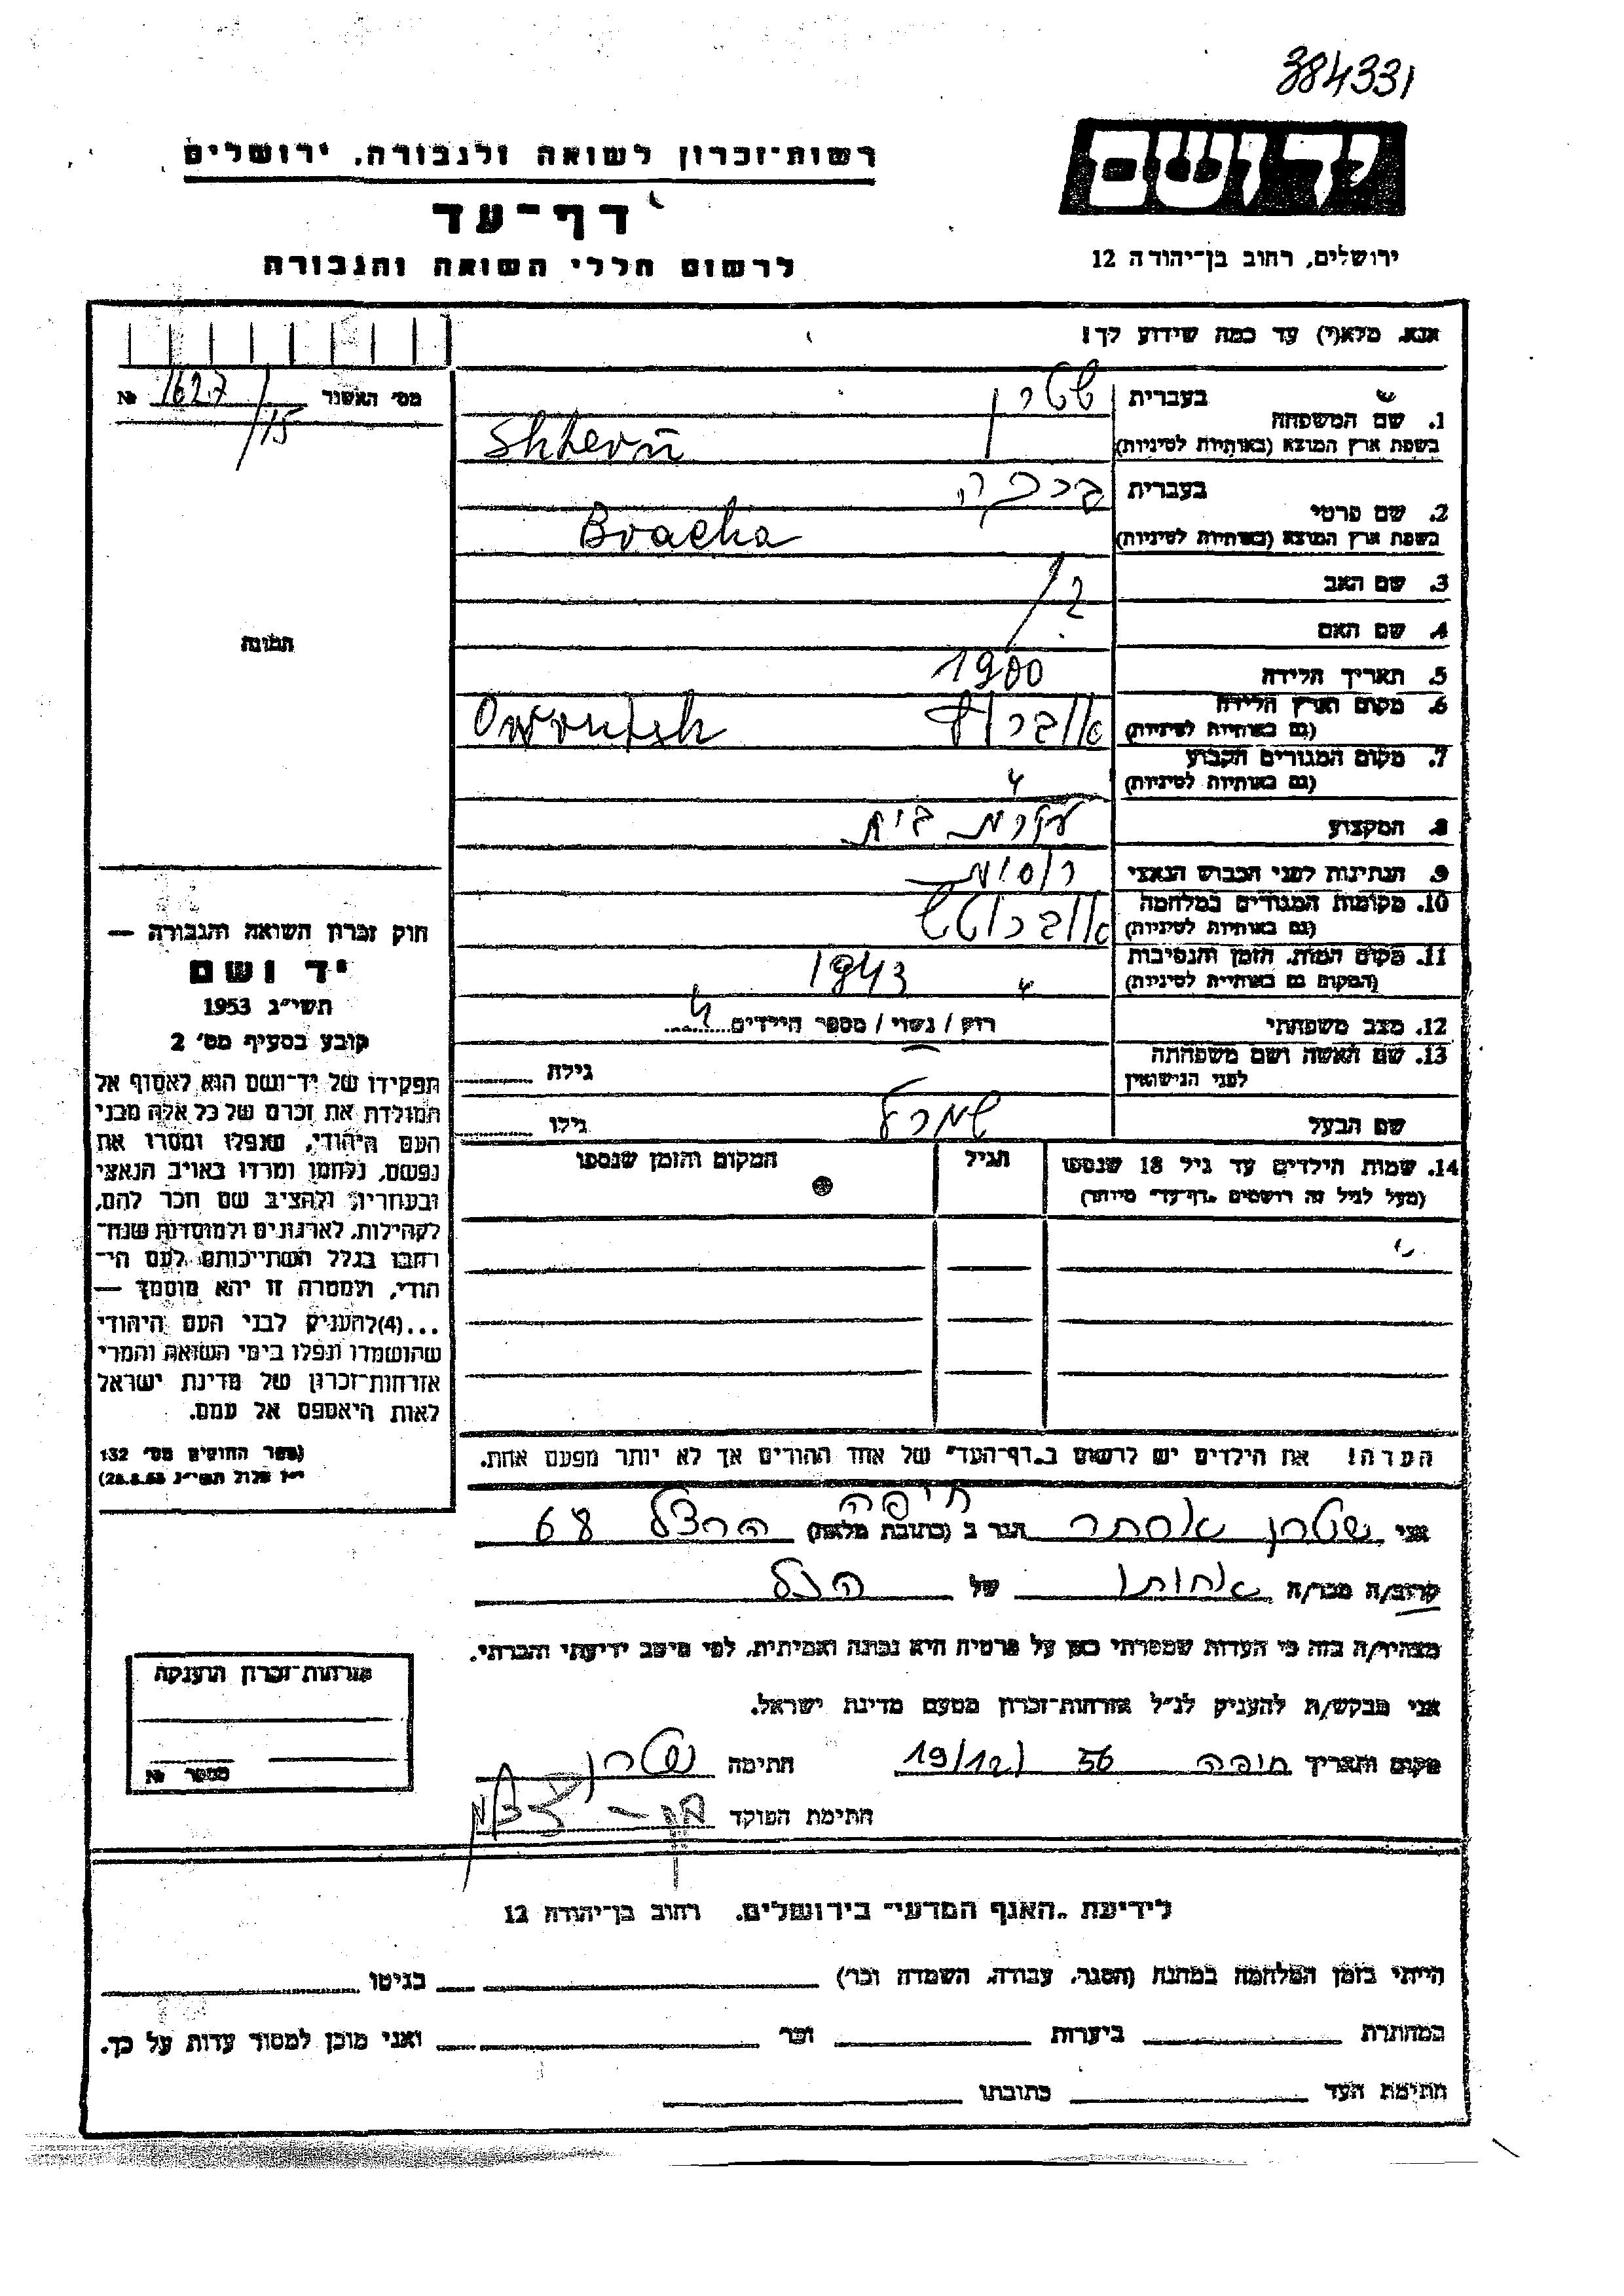 384331
יד ושם
רשות־זכרון לשואה ולגבורה, ירושלים
דף־עד
לרשום חללי השואה והגבורה
ירושלים, רחוב בן־יהודה 12
אנא, מלא(י) עד כמה שידוע לך!
מס' האשור 1627/15 №
תמונה
1. שם המשפחה
בעברית שטרן
בשפת ארץ המוצא (באותיות לטיניות) Shtern
2. שם פרטי
בעברית ברכה
בשפת ארץ המוצא (באותיות לטיניות) Bracha
3. שם האב ?
4. שם האם
5. תאריך הלידה 1900
6. מקום וארץ הלידה
(גם באותיות לטיניות)
7. מקום המגורים הקבוע
(גם באותיות לטיניות) "
8. המקצוע עקרת בית
9. הנתינות לפני הכבוש הנאצי רוסית
10. מקומות המגורים במלחמה
(גם באותיות לטיניות)
11. מקום המות, הזמן והנסיבות
(המקום גם באותיות לטיניות) " 1943
12. מצב משפחתי רוק / נשוי / מספר הילדים 4
13. שם האשה ושם משפחתה
לפני הנישואין
גילה
שם הבעל
גילו
14. שמות הילדים עד גיל 18 שנספו
(מעל לגיל זה רושמים "דף־עד" מיוחד)
הגיל
המקום והזמן שנספו
חוק זכרון השואה והגבורה —
יד ושם
תשי"ג 1953
קובע בסעיף מס' 2
תפקידו של יד־ושם הוא לאסוף אל
המולדת את זכרם של כל אלה מבני
העם היהודי, שנפלו ומסרו את
נפשם, נלחמו ומרדו באויב הנאצי
ובעוזריו, ולהציב שם וזכר להם,
לקהילות, לארגונים ולמוסדות שנח־
רבו בגלל השתייכותם לעם הי־
הודי, ולמטרה זו יהא מוסמך —
...(4)להעניק לבני העם היהודי
שהושמדו ונפלו בימי השואה והמרי
אזרחות־זכרון של מדינת ישראל
לאות היאספם אל עמם.
(ספר החוקים מס' 132
י"ז אלול תשי"ג 28.8.53)
הערה! את הילדים יש לרשום ב"דף־העד" של אחד ההורים אך לא יותר מפעם אחת.
אני שטרן אסתר הגר ב (כתובת מלאה) חיפה הרצל 68
קרוב/ה מכר/ה אחותו של הנ"ל
מצהיר/ה בזה כי העדות שמסרתי כאן על פרטיה היא נכונה ואמיתית, לפי מיטב ידיעתי והכרתי.
אני מבקש/ת להעניק לנ"ל אזרחות־זכרון מטעם מדינת ישראל.
מקום ותאריך חיפה 19/12/56 חתימה שטרן
חתימת הפוקד
אזרחות־זכרון הוענקה
מספר №
לידיעת "האגף המדעי" בירושלים, רחוב בן־יהודה 12
הייתי בזמן המלחמה במחנה (הסגר, עבודה, השמדה וכו') בגיטו
במחתרת ביערות וכו' ואני מוכן למסור עדות על כך.
חתימת העד כתובתו